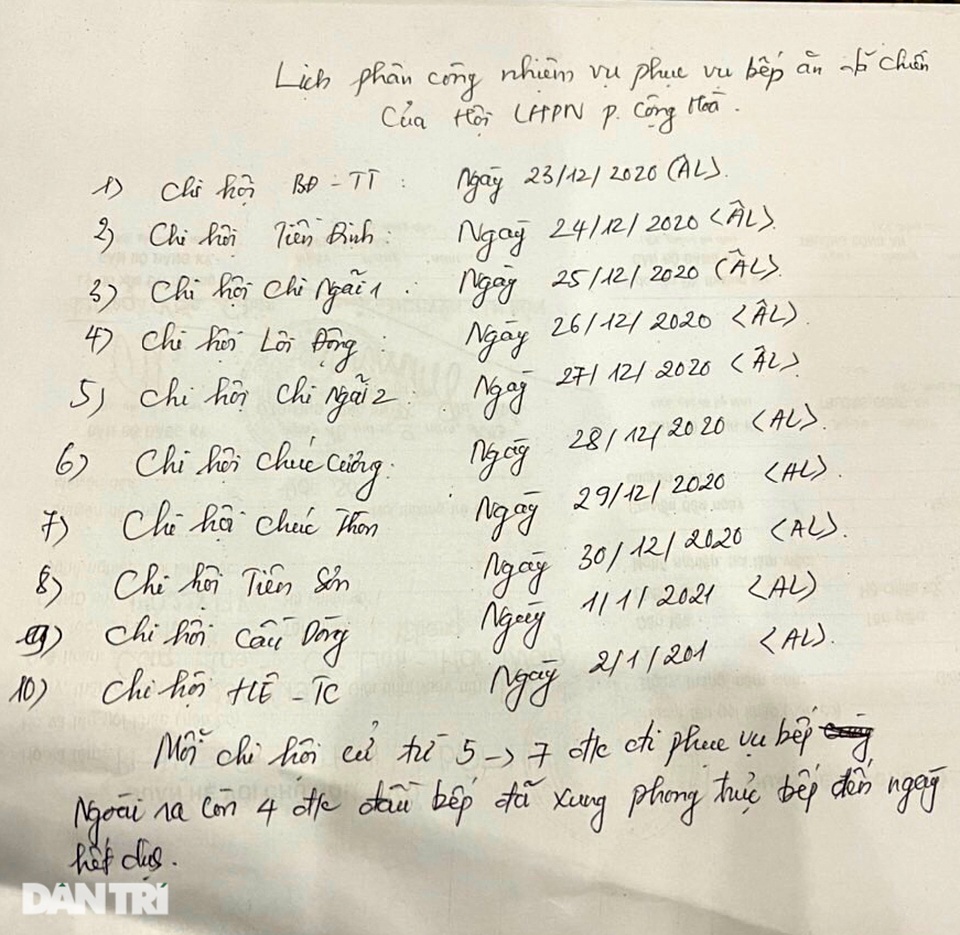 Lịch phân công nhiệm vụ phục vụ bếp ăn dã chiến
Của Hội LHPN p. Cộng Hoà.
1) Chi hội BĐ - TT : Ngày 23/12/2020 (ÂL).
2) Chi hội Tiền Định : Ngày 24/12/2020 <ÂL>.
3) Chi hội Chi Ngãi 1 : Ngày 25/12/2020 (ÂL).
4) Chi hội Lôi Động : Ngày 26/12/2020 <ÂL>.
5) Chi hội Chi Ngãi 2 : Ngày 27/12/2020 <ÂL>.
6) Chi hội Chúc Cương : Ngày 28/12/2020 <AL>.
7) Chi hội Chúc Thôn : Ngày 29/12/2020 <AL>.
8) Chi hội Tiên Sơn Ngày 30/12/2020 <AL>.
9) Chi hội Cầu Dòng Ngày 1/1/2021 <AL>
10) Chi hội HĐ - TC Ngày 2/1/201 <AL>.
Mỗi chi hội cử từ 5 -> 7 đ/c đi phục vụ bếp
Ngoài ra còn 4 đ/c đầu bếp đã xung phong trực bếp đến ngày
hết dịch.
DÂN TRÍ